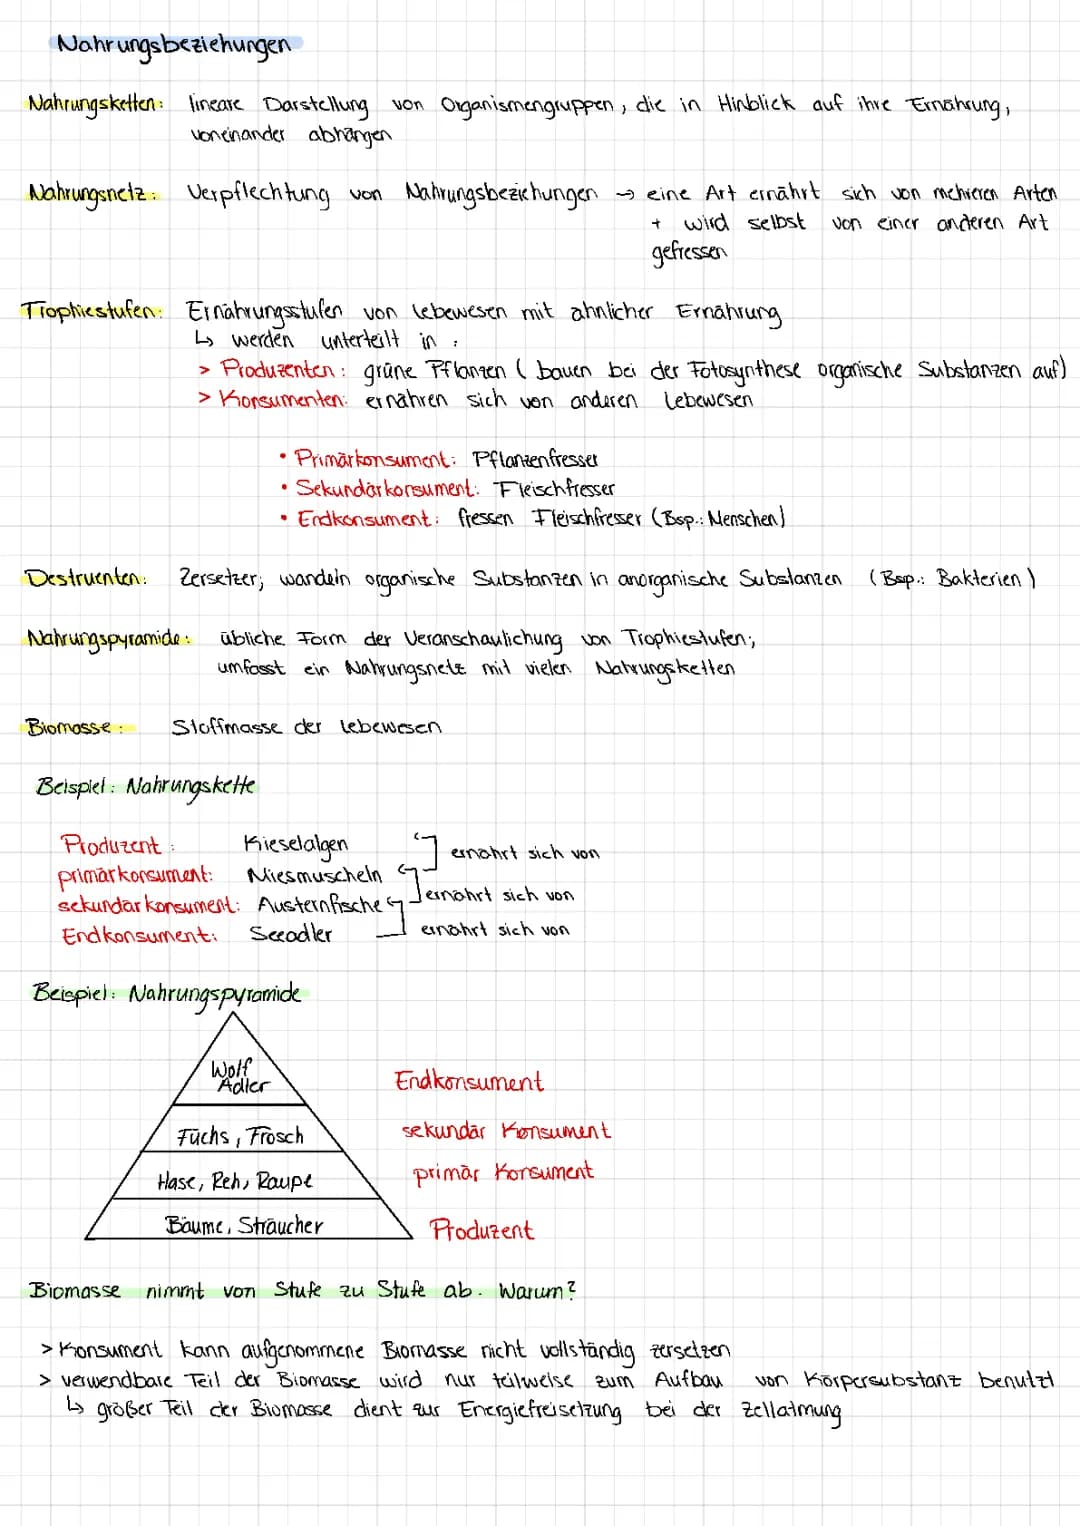 Nahrungsbeziehungen
Nahrungsketten: lineare Darstellung von Organismengruppen, die in Hinblick auf ihre Ernährung,
voneinander abhängen
Nahrungsnetz: Verpflechtung von Nahrungsbeziehungen → eine Art ernährt sich von mehreren Arten
+ wird selbst von einer anderen Art
gefressen
Trophiestufen: Ernährungsstufen von Lebewesen mit ähnlicher Ernährung
↳ werden unterteilt in:
> Produzenten: grüne Pflanzen (bauen bei der Fotosynthese organische Substanzen auf)
> Konsumenten: ernähren sich von anderen Lebewesen
• Primärkonsument: Pflanzenfresser
• Sekundärkonsument: Fleischfresser
• Endkonsument: fressen Fleischfresser (Bsp.: Menschen)
Destruenten: Zersetzer; wandeln organische Substanzen in anorganische Substanzen (Bsp.: Bakterien)
Nahrungspyramide: übliche Form der Veranschaulichung von Trophiestufen;
umfasst ein Nahrungsnetz mit vielen Nahrungsketten
Biomasse: Stoffmasse der Lebewesen
Beispiel: Nahrungskette
Produzent: Kieselalgen
ernährt sich von
primärkonsument: Miesmuscheln
ernährt sich von
sekundärkonsument: Austernfische
Endkonsument: Seeadler ernährt sich von
Beispiel: Nahrungspyramide
Wolf
Adler Endkonsument
Füchs, Frosch sekundär Konsument
Hase, Reh, Raupe primär Konsument
Bäume, Sträucher Produzent
Biomasse nimmt von Stufe zu Stufe ab. Warum?
> Konsument kann aufgenommene Biomasse nicht vollständig zersetzen
> verwendbare Teil der Biomasse wird nur teilweise zum Aufbau von Körpersubstanz benutzt
↳ großer Teil der Biomasse dient zur Energiefreisetzung bei der Zellatmung